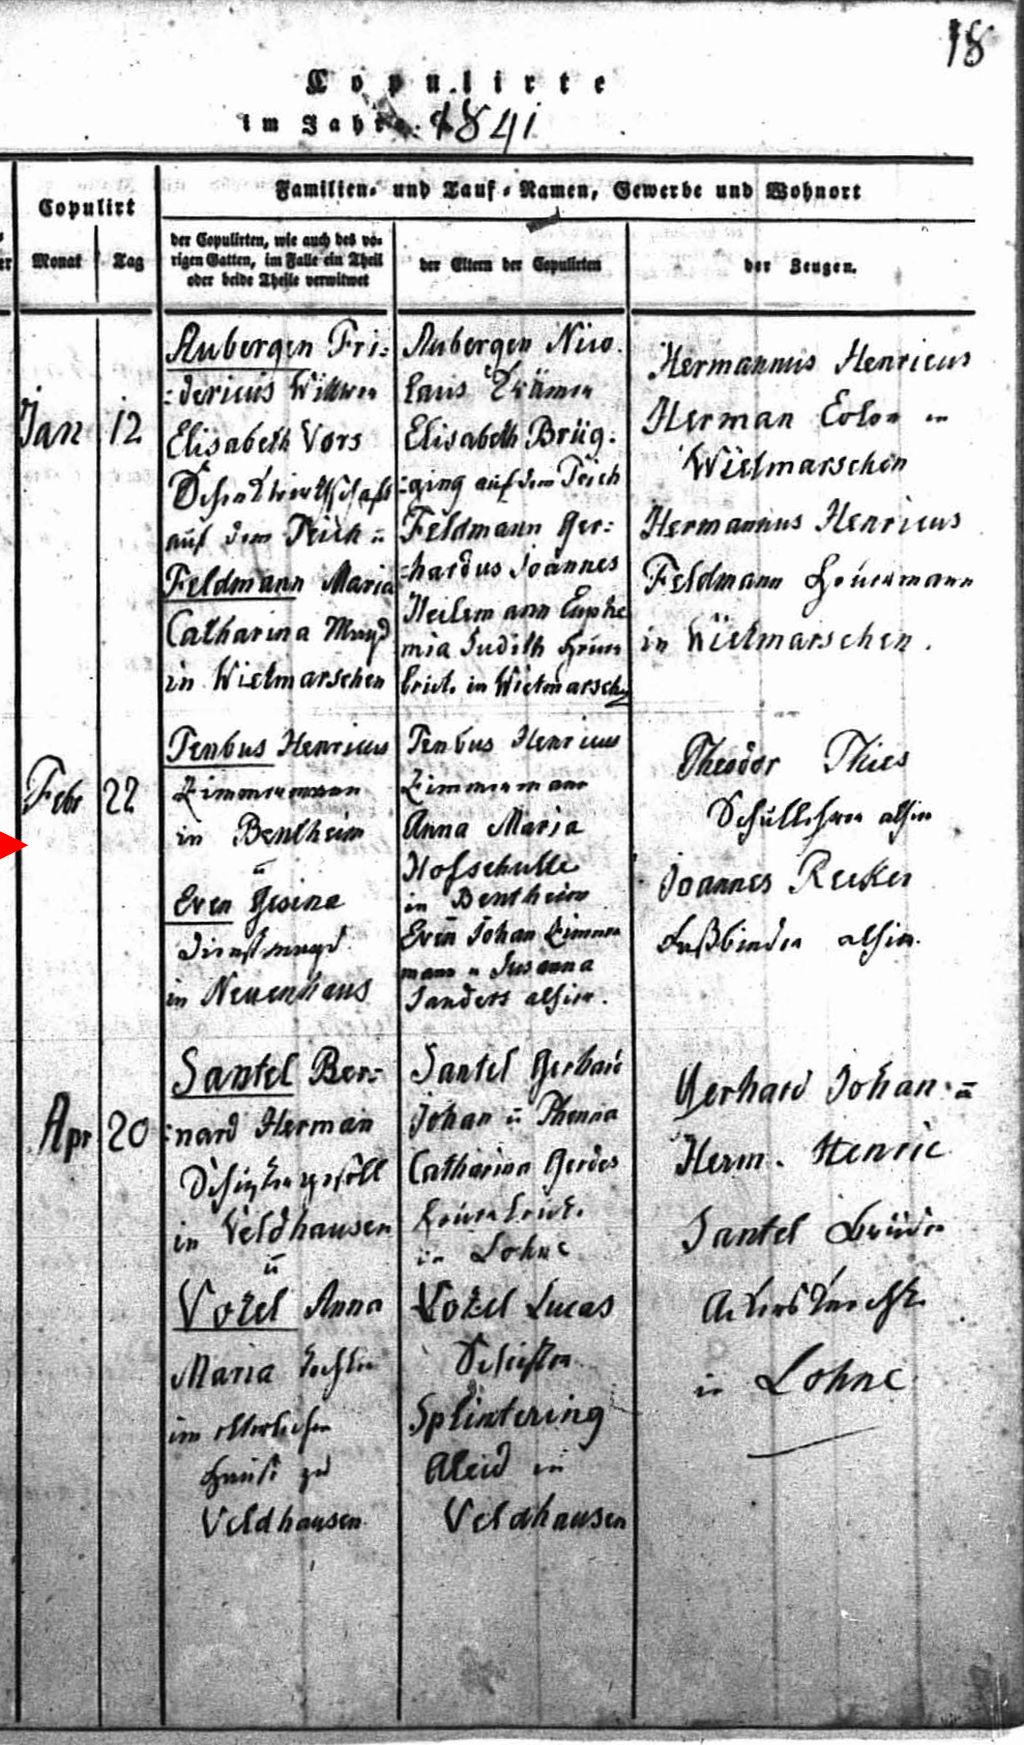 18
Copulirte
im Jahre 1841
Copulirt
Familien- und Tauf-Namen, Gewerbe und Wohnort
Monat
Tag
der Copulirten, wie auch des vo-
rigen Gatten, im Falle ein Theil
oder beide Theile verwitwet
der Eltern der Copulirten
der Zeugen.
Jan 12
Aubergen Fri-
:dericus Wittwer
Elisabeth Vors
auf dem Teich ü
Feldmann Maria
Catharina Magd
in Wietmarschen
Aubergen Nico
laus
Elisabeth Brüg:
:ging auf dem Teich
Feldmann Ger:
:hardus Joannes
Heilemann Euphe
mia Judith
in Wietmarschen
Hermannus Henricus
Herman Colon in
Wietmarschen
Hermannus Henricus
Feldmann Heuermann
in Wietmarschen.
Febr 22
Tenbus Henricus
Zimmermann
in Bentheim
ü
Even Gesina
Dienstmagd
in Neuenhaus
Tenbus Henricus
Zimmermann
Anna Maria
Hofschulte
in Bentheim
Even Johan Zimmer
mann u Susanna
Sanders alhier.
Theodor Thies
Schullehrer alhier
Joannes Recker
Faßbinder alhier.
Apr 20
Santel Ber:
:nard Herman
in Veldhausen
ü
Votel Anna
Maria Tochter
im elterlichen
Hause zu
Veldhausen
Santel Gerhard
Johan ü Thenna
Catharina Gerdes
Heuerleute
in Lohne
Votel Lucas
Schuster
Splintering
Aleid in
Veldhausen
Gerhard Johan ü
Herm. Henric
Santel Brüder
Ackersknechte
in Lohne